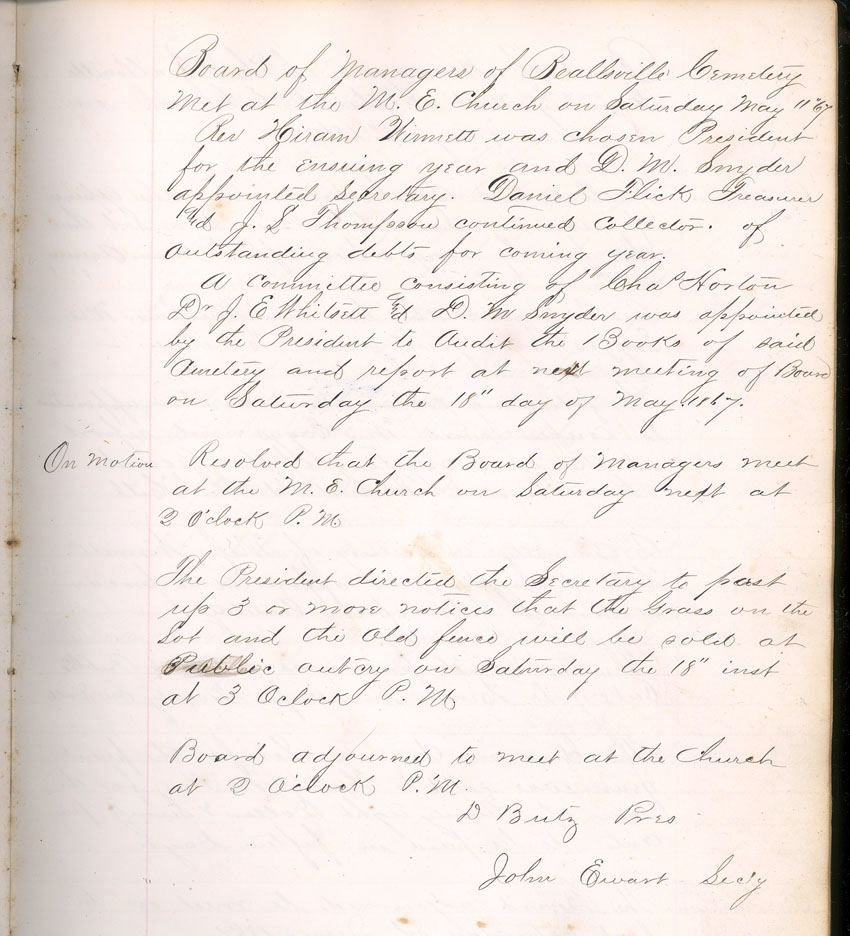 Board of Managers of Beallsville Cemetery
Met at the M. E. Church on Saturday May 11" 67
Rev Hiram Winnett was chosen President
for the ensuing year and D. M. Snyder
appointed Secretary. Daniel Flick Treasurer
& J. S. Thompson continued Collector. of
outstanding debts for coming year.
A committee consisting of Chas Horton
Dr J. E Whitsett & D. M Snyder was appointed
by the President to Audit the Books of said
Cemetery and report at next meeting of Board
on Saturday the 18" day of May 1867.
On Motion Resolved that the Board of Managers meet
at the M. E. Church on Saturday next at
2 O'clock P. M.
The President directed the Secretary to post
up 3 or more notices that the Grass on the
Lot and the Old fence will be sold at
Public outcry on Saturday the 18" inst
at 3 Oclock P. M.
Board adjourned to meet at the Church
at 2 O'clock P. M.
D Butz Pres
John Ewart Secy